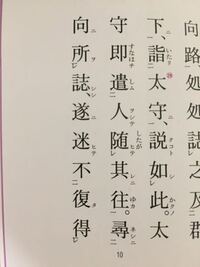 向路、処処誌之及郡
下、詣太守、説如此。太
守即遣人随其往。尋
向所誌、遂迷不復得
10